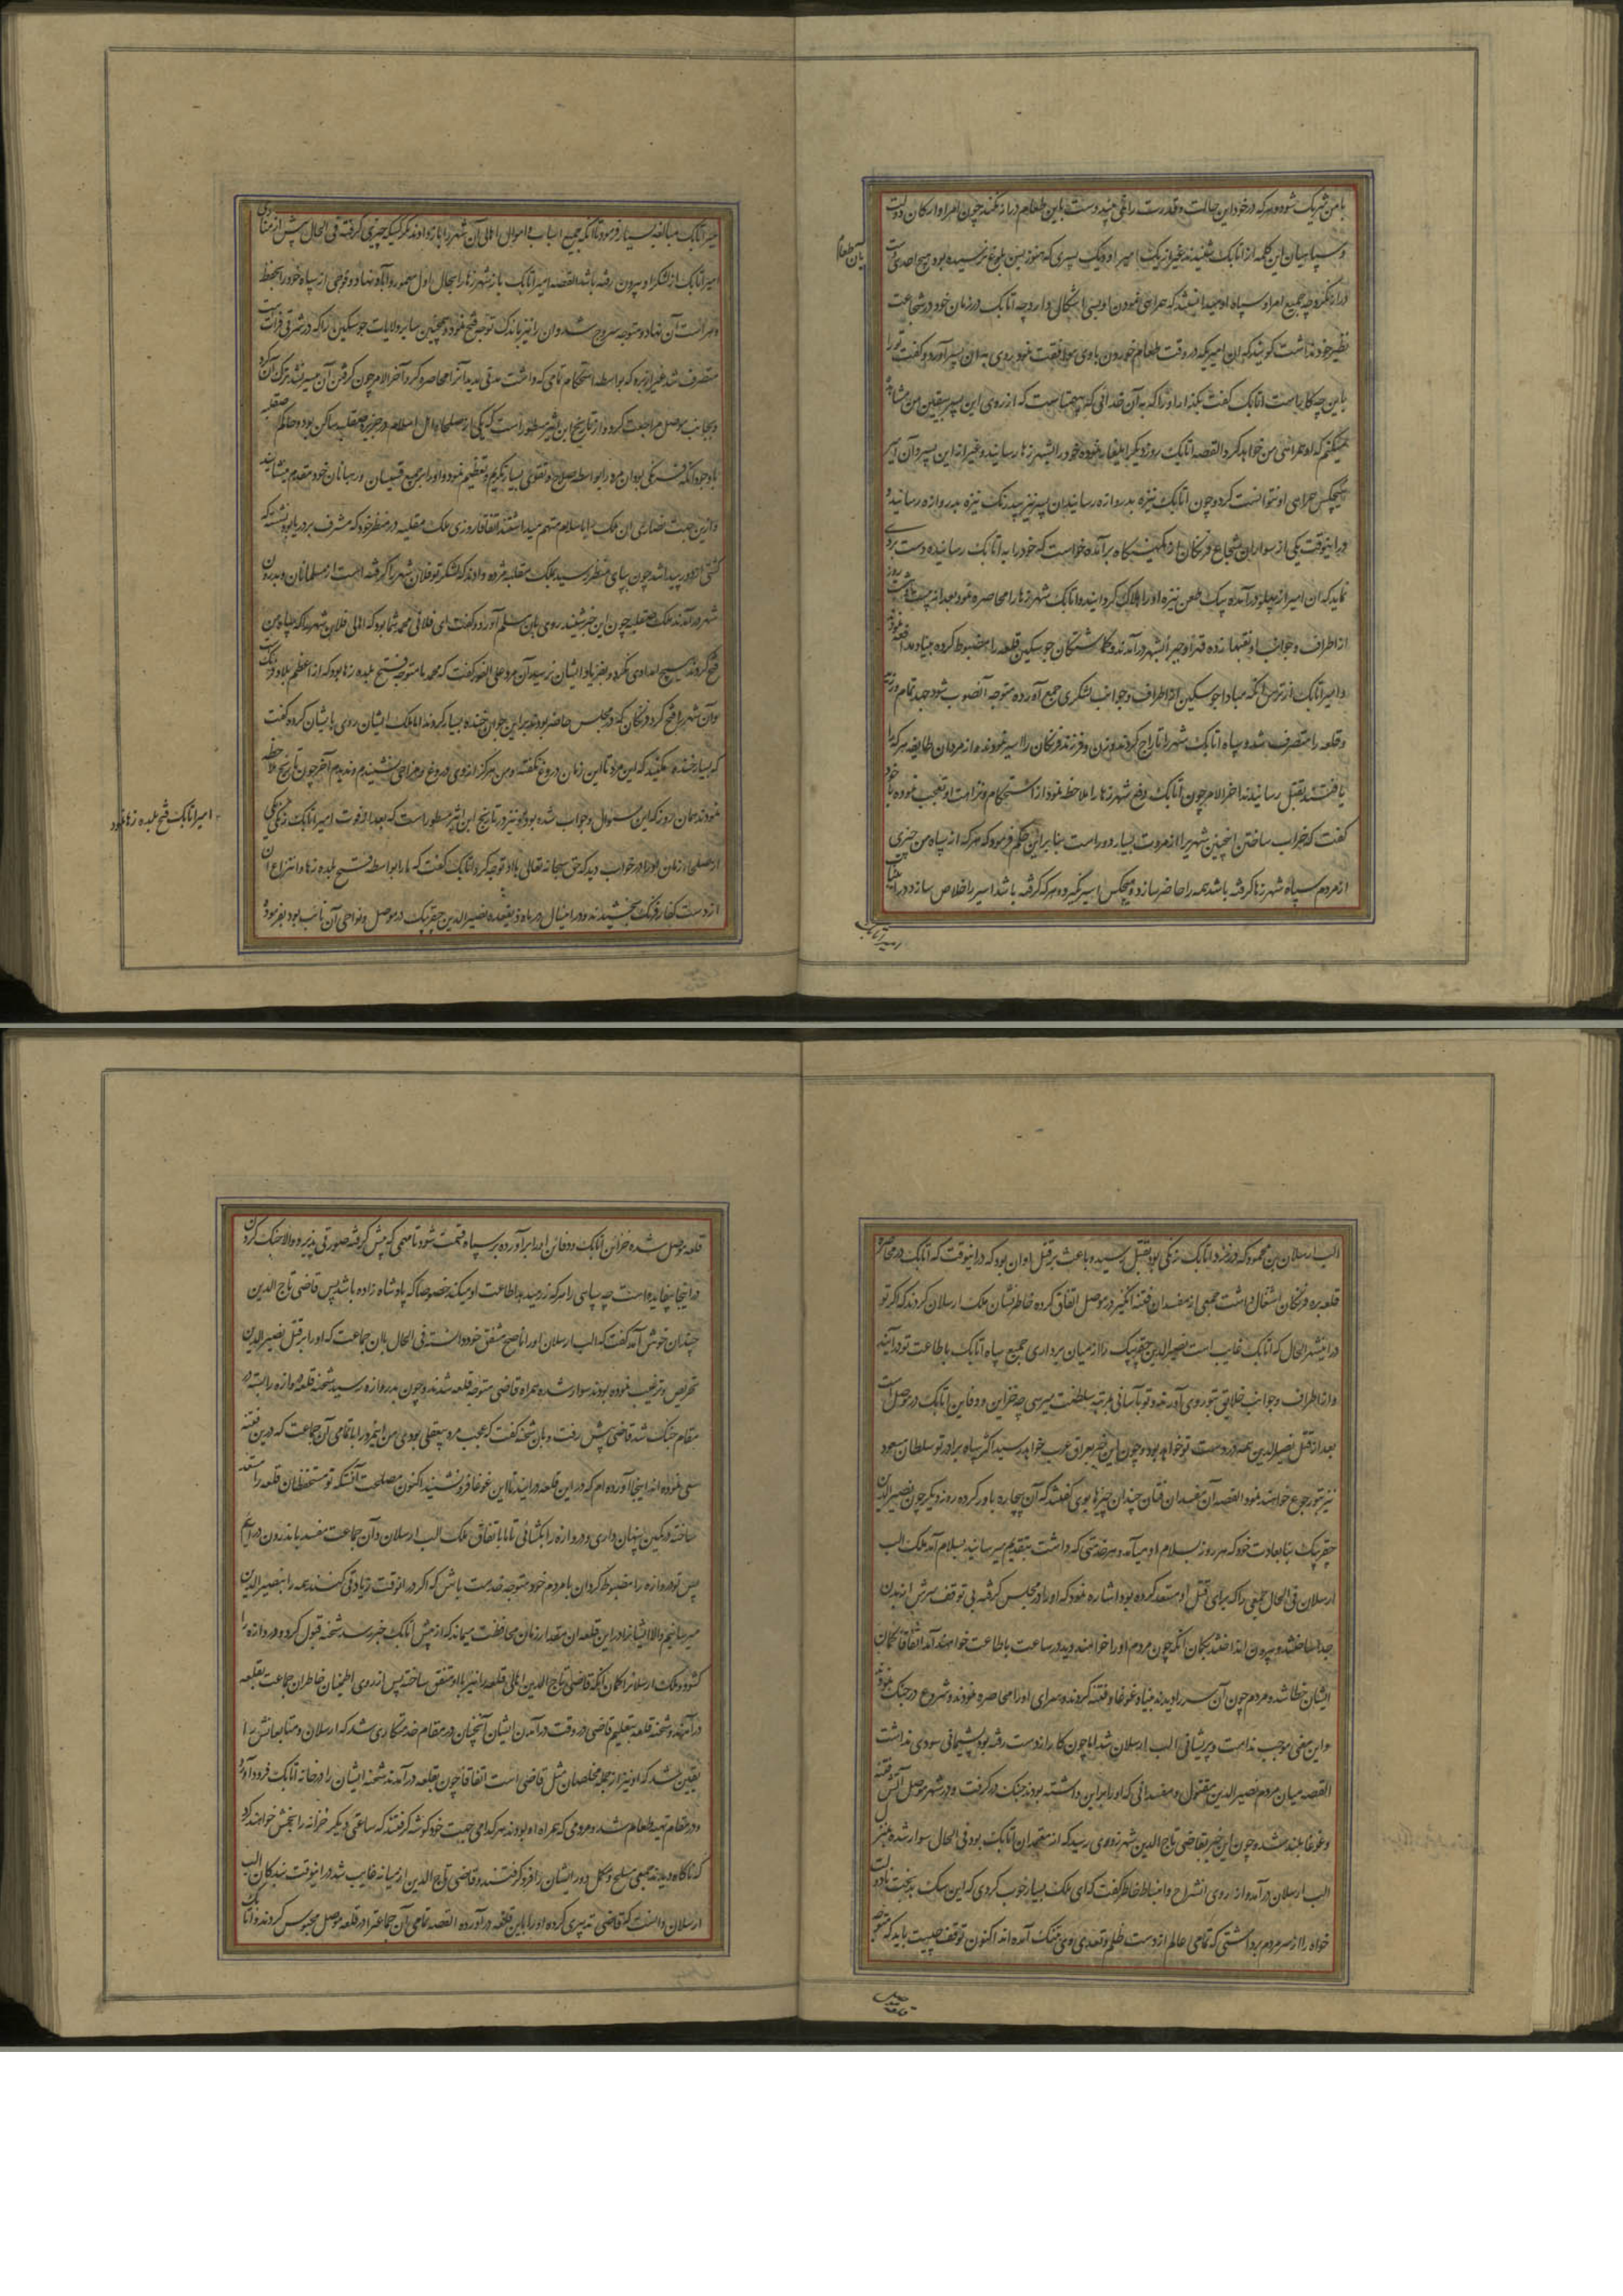 با من شریک شود و هر که در خود این حالت و قدرت را نمی‌بیند دست باین طعام دراز نکند چون امرا و ارکان دولت
و سپاهیان این کلمه از اتابک شنیدند غیر از یک امیر او و یک پسری که هنوز بسن بلوغ نرسیده بود هیچ احدی دست
بآن طعام
دراز نکرد چه جمیع امرا و سپاه او میدانستند که همراهی نمودن او بسی اشکال دارد چه اتابک در زمان خود در شجاعت
نظیر خود نداشت گویند که آن امیر که در وقت طعام خوردن با وی موافقت نمود روی به آن پسر آورد و گفت تو را
باین چه کار است اتابک گفت بگذار او را که به آن خدائی که بی همتاست که از روی این پسر بیقین من مشاهده
میکنم که او همراهی من خواهد کرد القصه اتابک روز دیگر ایلغار نموده خود را بشهر زها رسانید و غیر از این پسر و آن امیر
هیچکس همراهی او نتوانست کرد و چون اتابک نیزه بدروازه رسانید آن پسر نیز بیدرنگ نیزه بدروازه رسانید
در اینوقت یکی از سواران شجاع فرنگان از کمینگاه برآمده خواست که خود را به اتابک رسانیده دست بردی
نماید که آن امیر از پهلو درآمده بیک طعن نیزه او را هلاک گردانید و اتابک شهر زها را محاصره نمود بعد از بیست و هشت روز
از اطراف و جوانب او نقبها زده قهرا و جبرا بشهر درآمدند و گماشتگان جوسکین قلعه را مضبوط کرده بنیاد مدافعه نمودند
و امیر اتابک از ترس آنکه مبادا جوسکین از اطراف و جوانب لشکری جمع آورده متوجه آنصوب شود جد تمام ورزیده
و قلعه را متصرف شد و سپاه اتابک شهر را تاراج کردند و زن و فرزند فرنگان را اسیر نمودند و از مردان طایفه هر که را
یافتند بقتل رسانیدند آخرالامر چون اتابک وضع شهر زها را ملاحظه نمود از استحکام و نزاهت او تعجب نموده با خود
گفت که خراب ساختن اینچنین شهری را از مروت بسیار دور است بنابراین حکم فرمود که هر که از سپاه من چیزی
از مردم سپاه شهر زها گرفته باشد همه را حاضر سازد و هیچکس اسیر نگیرد و هر که گرفته باشد اسیر را خلاص سازد در این باب
امیر اتابک
امیر اتابک مبالغه بسیار فرمود تا آنکه جمیع اسباب و اموال اهالی آن شهر را باز دادند مگر کسیکه چیزی گرفته فی الحال پیش از منادی
امیر اتابک از لشکر او بیرون رفته باشد القصه امیر اتابک باز شهر زها را بحال اول معمور و آبادان نهاد و فوجی از سپاه خود را بحفظ
و حراست آن نهاد و متوجه سروج شد و آن را نیز باندک توجه فتح نمود و همچنین سایر ولایات جوسکین را که در شرقی فرات است
متصرف شد غیر از بیره که بواسطه استحکام تمامی که داشت مدتی مدید آنرا محاصره کرد و آخرالامر چون گرفتن آن میسر نشد ترک آن کرد
و بجانب موصل مراجعت کرد و از تاریخ ابن اثیر مسطور است که یکی از صلحا و اهل اسلام در جزیره صقلیه ساکن بود و حاکم صقلیه
باوجود آنکه فرنگی بود آن مرد را بواسطه صلاح و تقوی بسیار تکریم و تعظیم مینمود و او را بر جمیع قسیسان و رهبانان خود مقدم مینشاند
و ازین جهت نصاری آن ملک را باسلام متهم میداشتند اتفاقا روزی ملک صقلیه در منظر خود که مشرف بر دریا بود نشسته که
کشتی از دور پیدا شد چون بپای منظر رسید بملک صقلیه مژده دادند که لشکر تو فلان شهر را گرفته است از مسلمانان و بدرون
شهر درآمدند ملک صقلیه چون این خبر شنید روی باین مسلم آورد و گفت ای فلانی محمد شما بود که اهالی فلان شهر را که سپاه من
فتح کردند هیچ امدادی نکرد و بفریاد ایشان نرسید آن مرد علی الفور گفت که محمد ما متوجه فتح بلده زها بود که از اعظم بلاد فرنگ است
و آن شهر را فتح کرد فرنگان که در مجلس حاضر بودند برین جواب خنده بسیار کردند اما ملک ایشان روی بایشان کرده گفت
که بسیار خنده مکنید که این مرد تا این زمان دروغ نگفته و من هرگز از وی دروغ و مزاحی نشنیدم و ندیدم آخر چون تاریخ ملاحظه
نمودند همان روز که این سئوال و جواب شده بود و نیز در تاریخ ابن اثیر مسطور است که بعد از فوت امیر اتابک زنگی یکی
امیر اتابک فتح بلده زها نمود
از صلحا آن زمان او را در خواب دید که حق سبحانه تعالی با او چه کرد اتابک گفت که مرا بواسطه فتح بلده زها و انتزاع آن
از دست کفار فرنگ بخشیدند و در این سال در ماه ذیقعده نصیر الدین جقربیک در موصل و نواحی آن نائب بود بفرموده
الب ارسلان بن محمود که در نزد اتابک زنگی بود بقتل رسید و باعث بر قتل او آن بود که در اینوقت که اتابک در محاصره
قلعه بیره فرنگان اشتغال داشت جمعی از مفسدان فتنه انگیز در موصل اتفاق کرده خاطر نشان ملک ارسلان کردند که اگر تو
درینشهر الحال که اتابک غایب است نصیرالدین جقربیک را از میان برداری جمیع سپاه اتابک باطاعت تو درآیند
و از اطراف و جوانب خلایق بتو روی آورند و تو بآسانی بمرتبه سلطنت میرسی چه خزاین و دفاین اتابک در موصل است
بعد از قتل نصیرالدین همه در دست تو خواهد بود و چون این خبر بعراق عرب خواهد رسید اکثر سپاه برادر تو سلطان مسعود
نیز بتو رجوع خواهند نمود القصه آن مفسدان فتان چندان چیزها بوی گفتند که آن بیچاره باور کرده روز دیگر چون نصیرالدین
جقربیک بنا بعادت خود که هر روز بسلام او میآمد و هر خدمتی که داشت بتقدیم میرسانید بسلام آمد ملک الب
ارسلان فی الحال جمعی را که برای قتل او مستعد کرده بود اشاره نمود که او را در مجلس گرفته بی توقف سرش از بدن
جدا ساختند و بیرون انداختند بگمان آنکه چون مردم او را خواهند دید در ساعت باطاعت خواهند آمد اتفاقا گمان
ایشان خطا شده مردم چون آن سر را دیدند بنیاد غوغا و فتنه کردند و سرای او را محاصره نمودند و شروع در جنگ نمودند
و این معنی موجب ندامت و پریشانی الب ارسلان شد اما چون کار از دست رفته بود پشیمانی سودی نداشت
القصه میان مردم نصیرالدین مقتول و مفسدانی که او را بر این داشته بودند جنگ در گرفت و در شهر موصل آتش فتنه
و غوغا بلند شد و چون این خبر بقاضی تاج الدین شهرزوری رسید که از معتمدان اتابک بود فی الحال سوار شده بمنزل
الب ارسلان درآمد و از روی انشراح و انبساط خاطر گفت که ای ملک بسیار خوب کردی که این سگ بدبخت نادولت
خواه را از سر مردم برداشتی که تمامی عالم از دست ظلم و تعدی وی بتنگ آمده اند اکنون توقف چیست باید که متوجه
قلعه موصل
قلعه موصل شده خزائن اتابک و دفائن او را برآورده بر سپاه قسمت شود تا مهمی که پیش گرفته صورتی پذیرد و الا جنگ کردن
در اینجا بیفایده است چه سپاهی را هر که زر میدهد اطاعت او میکند خصوصا که پادشاه زاده باشد پس قاضی تاج الدین
چندان خوش آمد گفت که الب ارسلان او را ناصح مشفق خود دانسته فی الحال با آن جماعت که او را بر قتل نصیرالدین
تحریص و ترغیب نموده بودند سوار شده همراه قاضی متوجه قلعه شدند و چون بدروازه رسید شحنه قلعه دروازه را بسته در
مقام جنگ شد قاضی پیش رفت و بآن شحنه گفت که عجب مرد بیعقلی بوده‌ی من اینمرد را با تمامی آن جماعت که درین فتنه
سعی نموده اند اینجا آورده ام که در این قلعه درآیند تا این غوغا فرو نشیند اکنون مصلحت آنست که تو مستحفظان قلعه را مستعد
ساخته در کمین پنهان داری و دروازه را بگشائی تا ما باتفاق ملک الب ارسلان و آن جماعت مفسد باندرون درآییم
پس تو دروازه را مضبوط گردان با مردم خود متوجه خدمت باش که اگر در آنوقت زیادتی کنند همه را بنصیرالدین
میرسانیم و الا ایشان را در این قلعه آن مقدار زمان محافظت مینمائیم که از پیش اتابک خبر رسد شحنه قبول کرده دروازه را
گشود و ملک ارسلان را گمان آنکه قاضی تاج الدین اهالی قلعه را نیز با او متفق ساخته پس از روی اطمینان خاطر آن جماعت بقلعه
درآمدند و شحنه قلعه بتعلیم قاضی در وقت درآمدن ایشان آنچنان در مقام خدمتکاری شد که ارسلان و متابعانش را
یقین شد که او نیز از جمله مخلصان مثل قاضی است اتفاقا چون بقلعه درآمدند شحنه ایشان را در خانه اتابک فرود آورد
و در مقام تهیه طعام شد و مردمی که همراه او بودند هر کدامی بجهت خود گوشه گرفتند که ساعتی دیگر خزانه را بخش خواهند کرد
که ناگاه دیدند جمعی مسلح و مکمل دور ایشان را فرو گرفتند و قاضی تاج الدین از میانه غایب شد در اینوقت بندگان الب
ارسلان دانست که قاضی تدبیری کرده او را باین قلعه درآورده القصه تمامی آن جماعت را در قلعه موصل محبوس کردند و اتابک